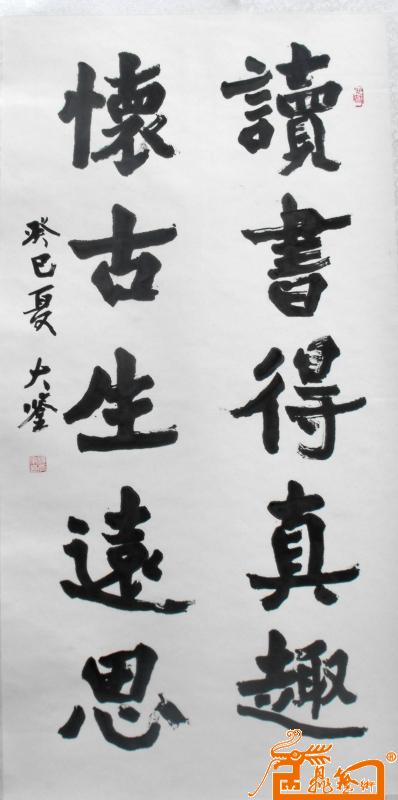 讀書得真趣
懷古生遠思
癸巳夏 大鑒